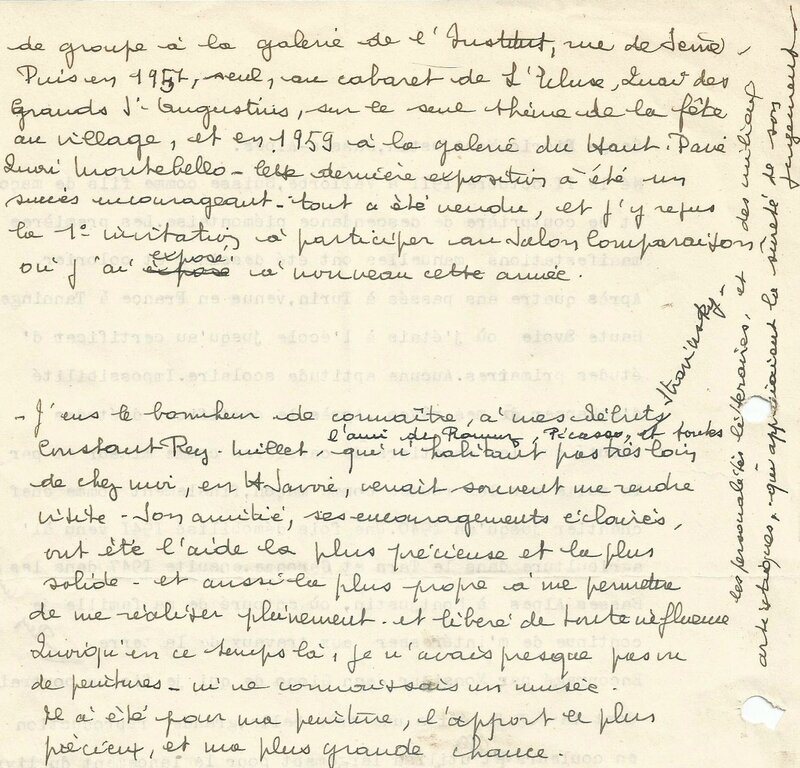 de groupe à la galerie de l'Institut, rue de Seine.
Puis en 1957, seul, au cabaret de L'Ecluse, Quai des
Grands St-Augustins, sur le seul thème de la fête
au village, et en 1959 à la galerie du Haut-Pavé
Quai Montebello - Cette dernière exposition a été un
succès encourageant - tout a été vendu, et j'y reçus
la 1e invitation à participer au Salon Comparaison
où j'ai exposé à nouveau cette année.
- J'eus le bonheur de connaître, à mes débuts
Constant Rey-Millet, l'ami de Ramuz, Picasso, Stravinsky - et toutes
les personnalités littéraires, et des milieux
artistiques, - qui appréciaient la sûreté de son
jugement -
qui habitant pas très loin
de chez moi, en Hte Savoie, venait souvent me rendre
visite - Son amitié, ses encouragements éclairés,
ont été l'aide la plus précieuse et la plus
solide - et aussi la plus propre à me permettre
de me réaliser pleinement - et libéré de toute influence
Quoiqu'en ce temps là, je n'avais presque pas vu
de peintures - ni ne connaissais un musée.
Il a été pour ma peinture, l'apport le plus
précieux, et ma plus grande chance.